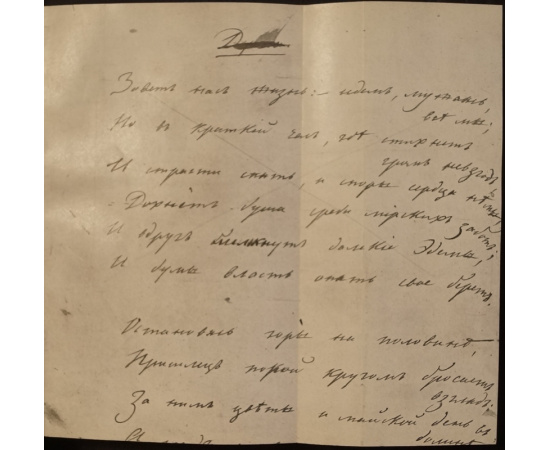 Зоветъ насъ жизнь: идемъ, мужаясь,
всѣ мы;
Но въ краткій часъ, гдѣ стихнетъ
громъ невзгодъ
И страсти спятъ, и споры сердца нѣмы,
Дохнетъ душа среди мірскихъ заботъ,
И вдругъ блеснутъ далекіе Эдемы,
И думы власть опять свое беретъ.
Остановясь горы на половинѣ,
Пришлецъ порой кругомъ бросаетъ
взглядъ:
За нимъ цвѣты и майской день въ
долинѣ